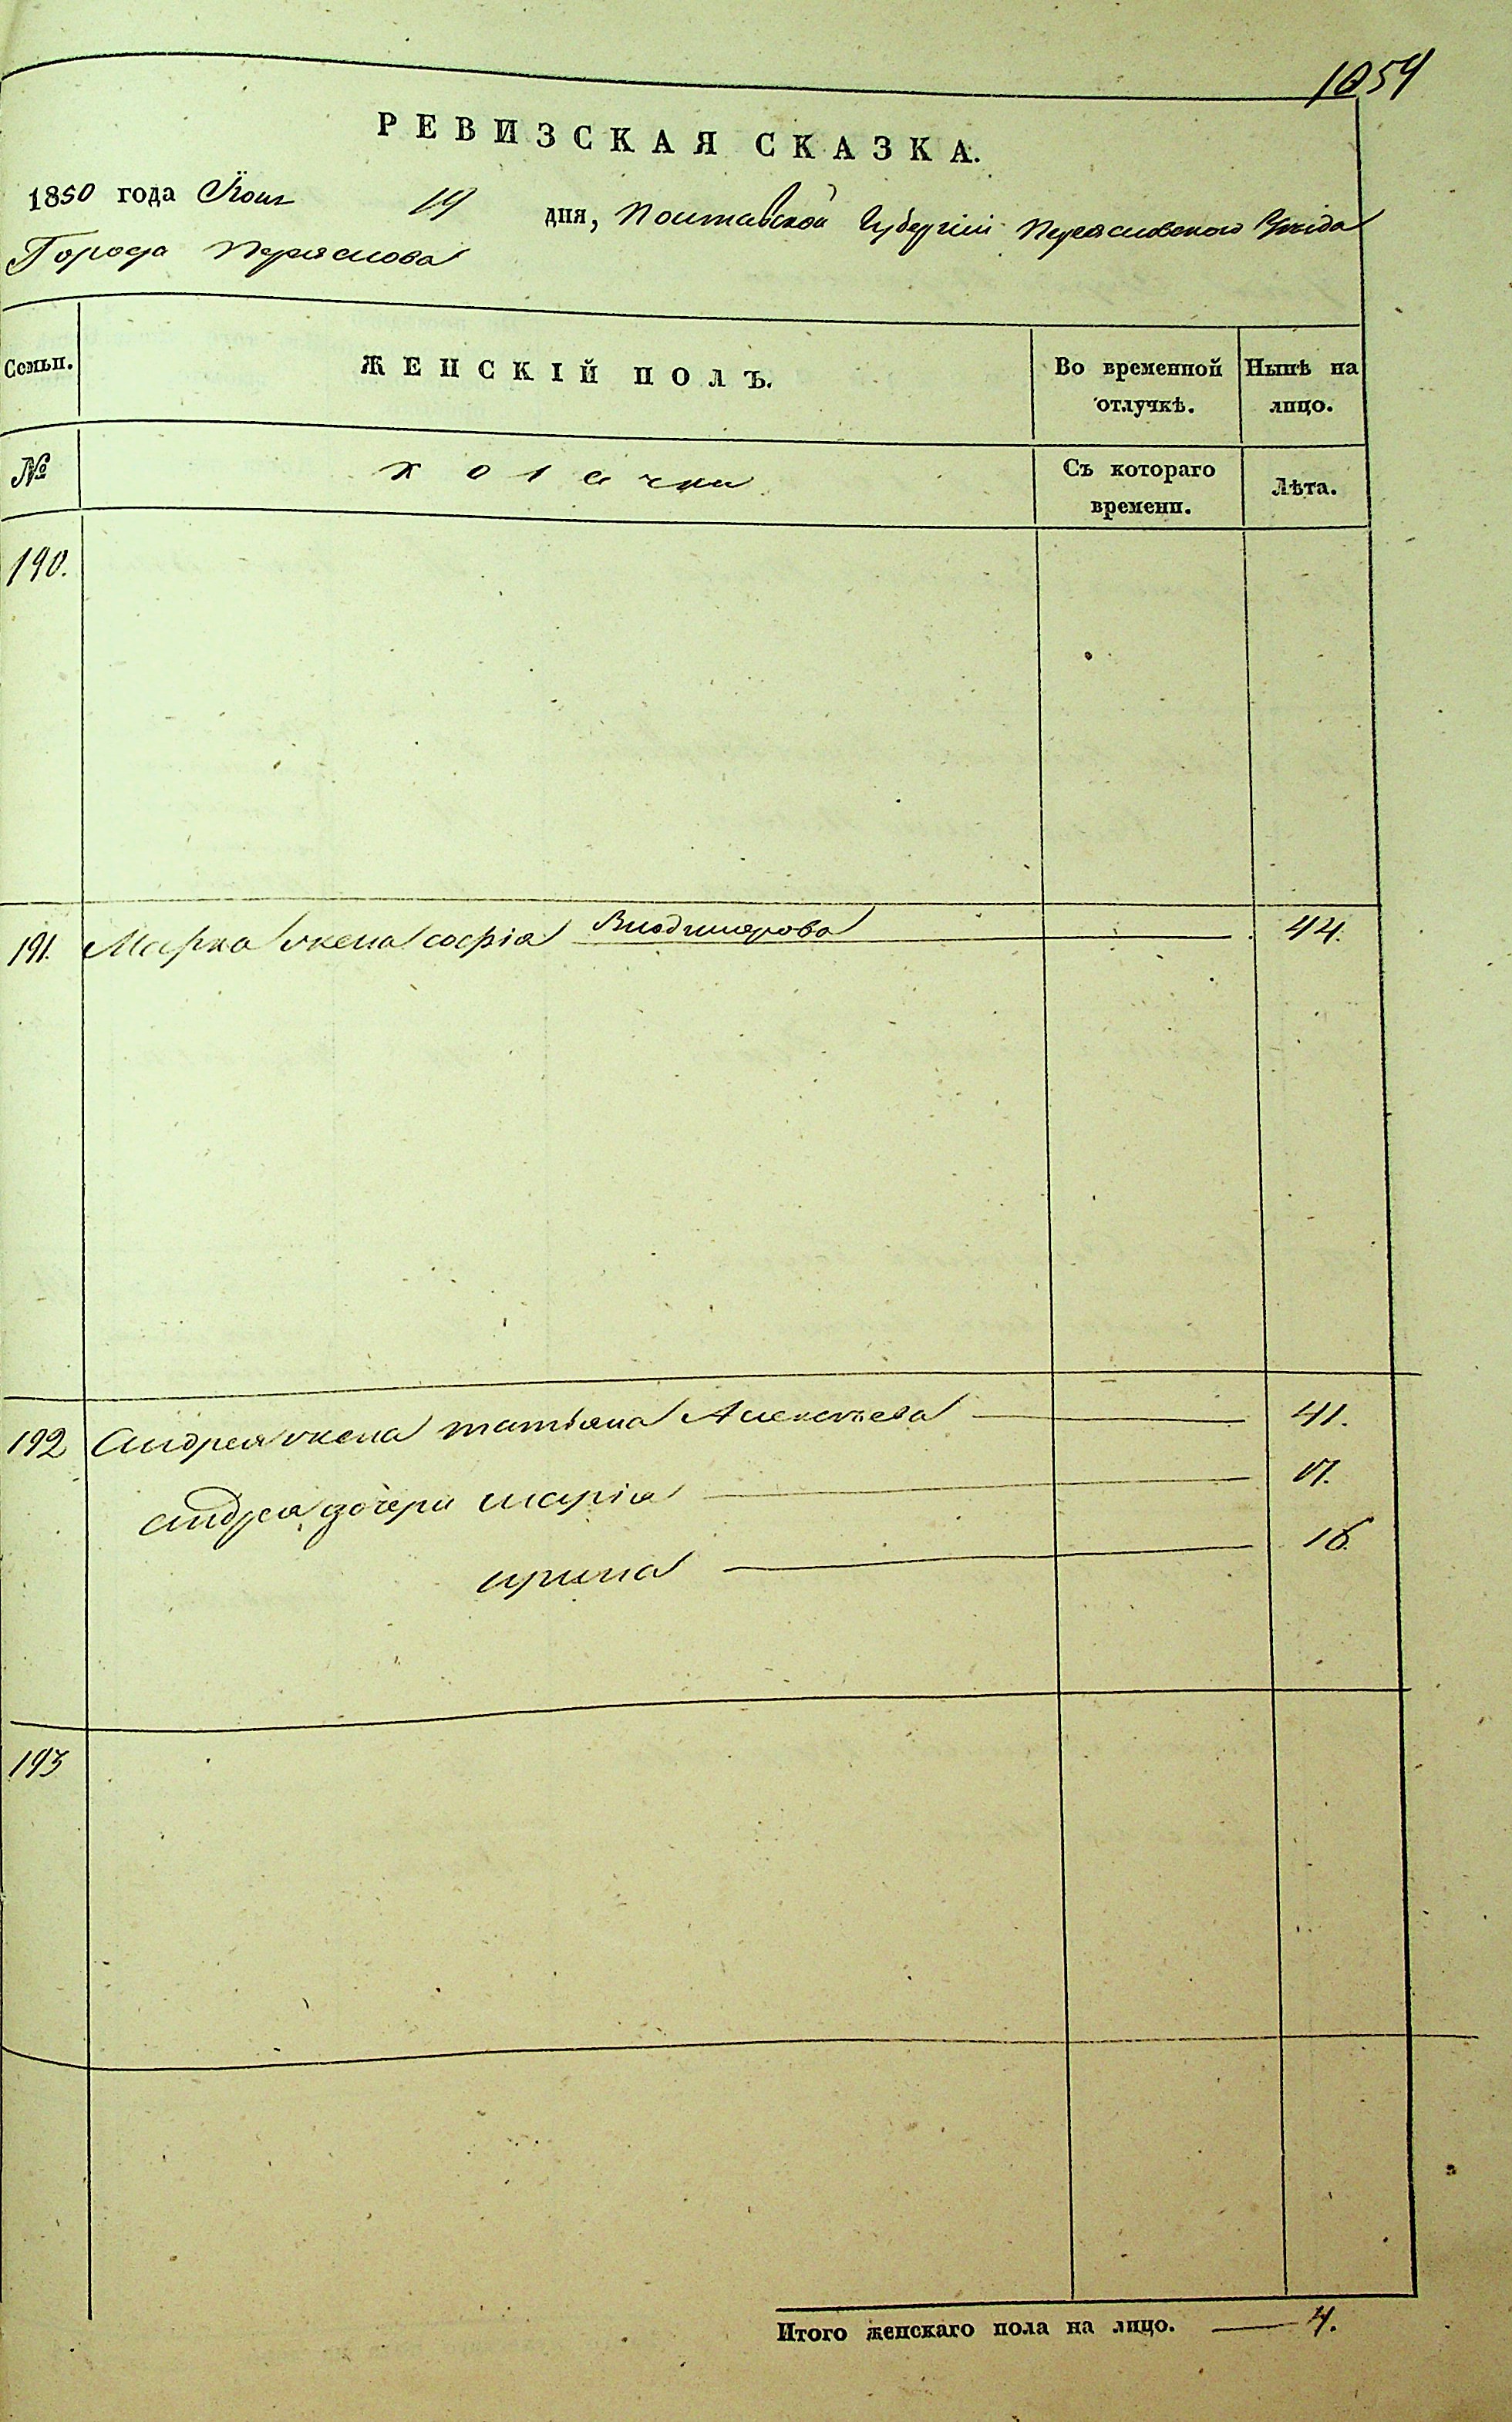 1054
РЕВИЗСКАЯ СКАЗКА.
1850 года Июня 19 дня, Полтавской Губерніи Переяславского Уезда
Города Переяслова
Семьи. ЖЕНСКІЙ ПОЛЪ. Во временной отлучкѣ. Нынѣ на лицо.
№ козачки Съ котораго времени. Лѣта.
190.
191. Марка жена софія Владимерова 44.
192 Андрея жена татьяна Алексѣева 41.
андрея дочери марія 17.
ирина 16.
193
Итого женскаго пола на лицо. 4.